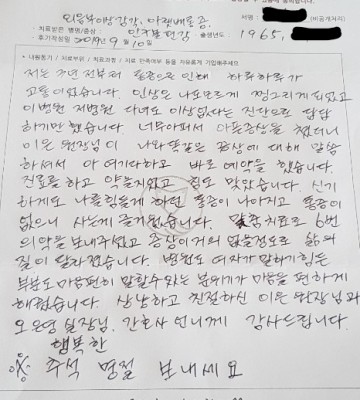 치료받은 병명/증상 : 외음부이상감각, 아랫배통증, 성명 :
인지불면감 출생년도 : 1965,
후기작성일 2019년 9월 10일
* 내원동기 / 치료부위 / 치료과정 / 치료 만족여부 등을 자유롭게 기입해주세요
저는 7년 전부터 통증으로 인해 하루하루가
고통이었습니다. 인상은 나도모르게 찡그리게 되었고
이병원 저병원 다녀도 이상없다는 진단으로 답답
하기만 했습니다. 너무아파서 아픈증상을 찾았더니
이은 원장님이 나와똑같은 증상에 대해 말씀
하셔서 아 여기다하고 바로 예약을 했습니다.
진료를 하고 약을지었고 침도 맞았습니다. 신기
하게도 나를힘들게 하던 통증이 나아지고 통증이
없으니 사는게 즐거웠습니다. 맞춤치료로 6번
의약을 보내주셨고 증상이거의 없을정도로 삶의
질이 달라졌습니다. 병원도 여자가 말하기힘든
부분도 마음편히 말할수있는 분위기가 마음을 편하게
해줬습니다. 상냥하고 친절하신 이은 원장님과
오은영 실장님. 간호사 언니께 감사드립니다.
행복한
※ 추석 명절 보내세요